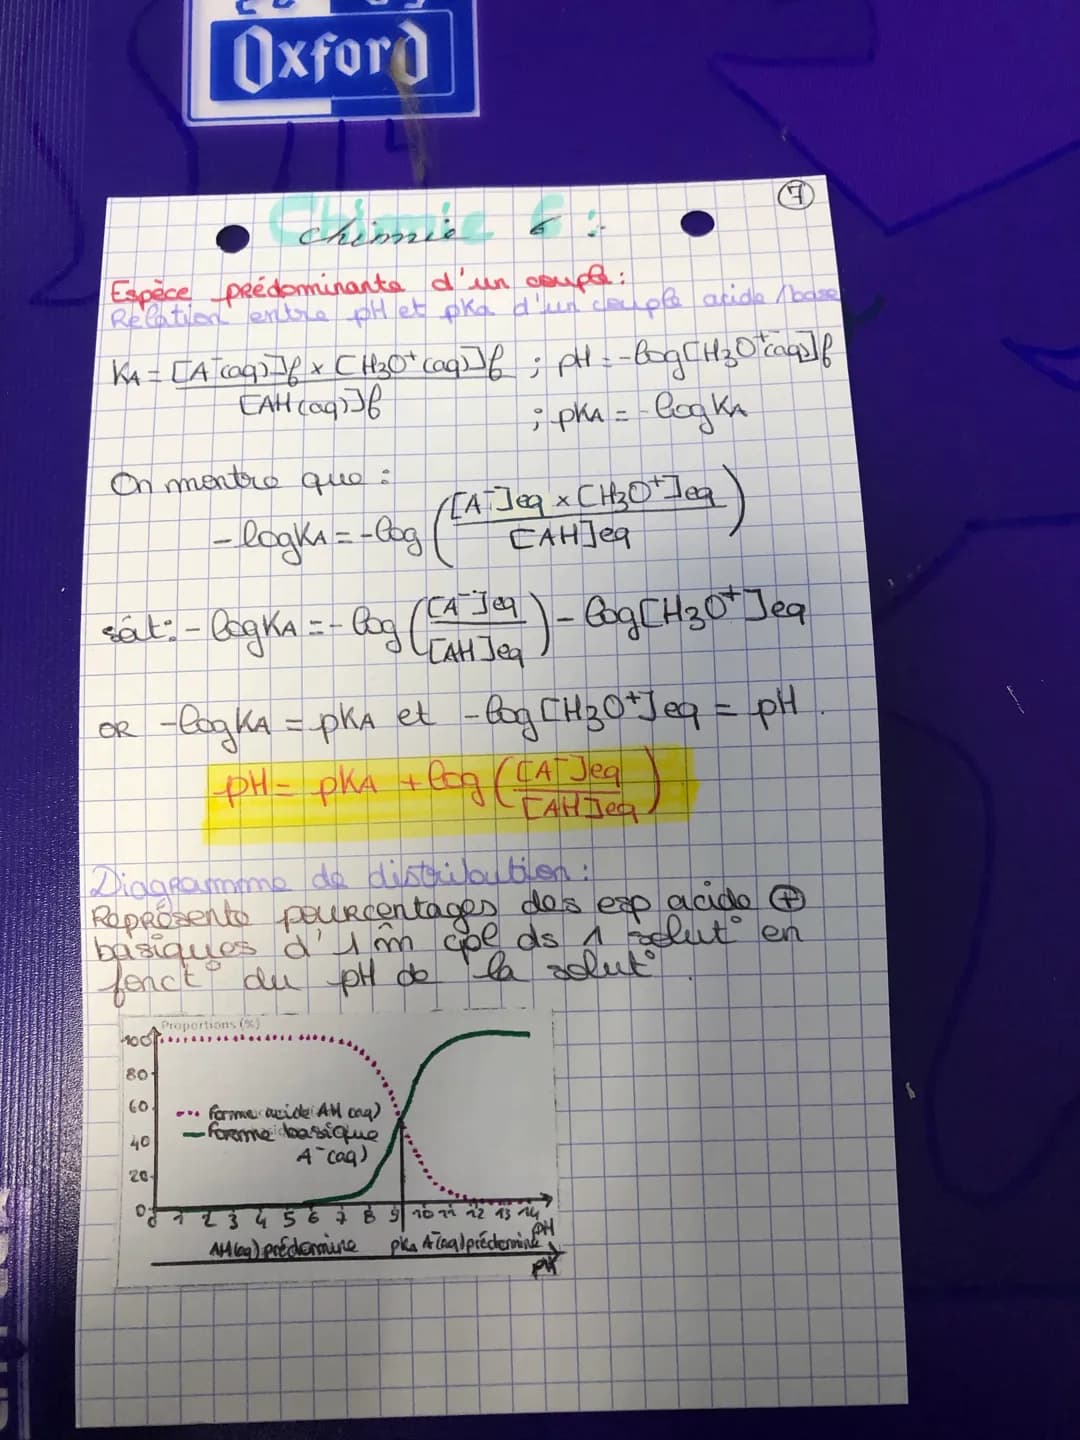 Oxford
7
Chimie 6 :
Espèce prédominante d'un couple :
Relation entre pH et pKa d'un couple acide/base
KA = [A⁻(aq)]f × [H3O⁺(aq)]f / [AH(aq)]f ; pH = -log[H3O⁺(aq)]f
; pKA = -log KA
On montre que :
-logKA = -log ([A⁻]eq × [H3O⁺]eq / [AH]eq)
soit : -logKA = -log ([A⁻]eq / [AH]eq) - log[H3O⁺]eq
OR -logKA = pKA et -log[H3O⁺]eq = pH.
pH = pKA + log ([A⁻]eq / [AH]eq)
Diagramme de distribution :
Représente pourcentages des esp acide ⊕
basiques d'1 m̂ cpl ds 1 solut° en
fonct° du pH de la solut°.
Proportions (%)
100
80
60
forme acide AH(aq)
forme basique
40
A⁻(aq)
20
0
0 1 2 3 4 5 6 7 8 9 10 11 12 13 14
pH
AH(aq) prédomine pKa A⁻(aq) prédomine
pH